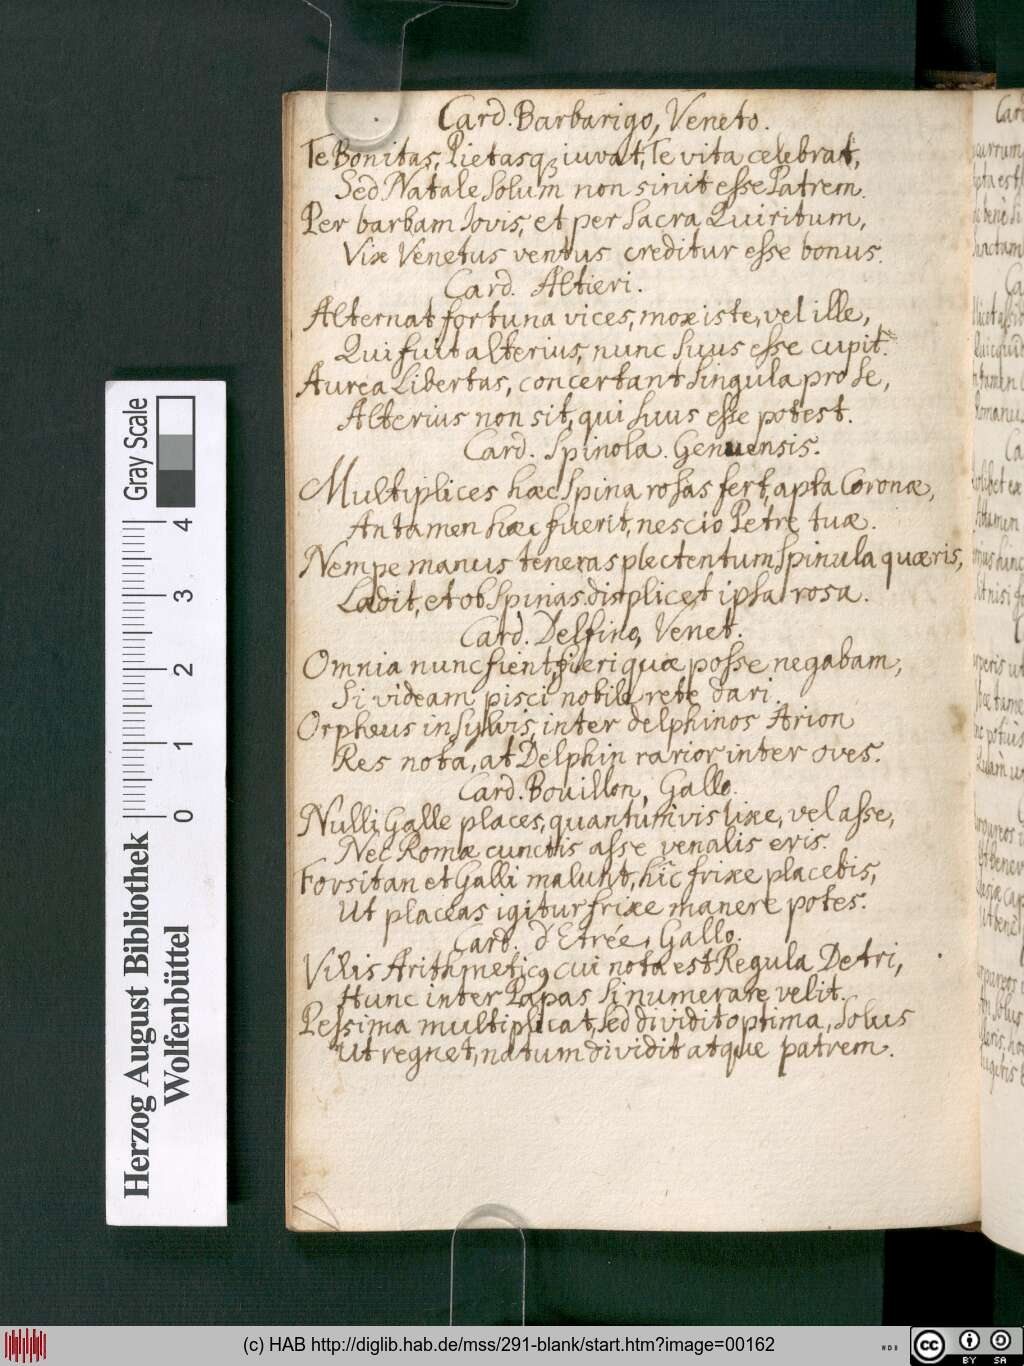 Card. Barbarigo, Veneto.
Te Bonitas, Pietasq; iuvat, Te vita celebrat,
Sed Natale Solum non sinit esse Patrem.
Per barbam Jovis, et per Sacra Quiritum,
Vix Venetus ventus creditur esse bonus.
Card. Altieri.
Alternat fortuna vices, mox iste, vel ille,
Qui fuit alterius, nunc Suus esse cupit.
Aurea Libertas, concertant Singula pro Se,
Alterius non sit, qui Suus esse potest.
Card. Spinola. Genuensis.
Multiplices hæc Spina rosas fert, apta Coronæ,
An tamen hæc fuerit, nescio Petre tuæ.
Nempe manus teneras plectentum Spinula quæris,
Lædit, et ob Spinas displicet ipsa rosa.
Card. Delfino, Venet.
Omnia nunc fient, fieri quæ posse negabam,
Si videam pisci nobile rete dari.
Orpheus in Sylvis, inter delphinos Arion
Res nota, at Delphin rarior inter oves.
Card. Bouillon, Gallo.
Nulli Galle places, quantumvis lixe, vel asse,
Nec Romæ cunctis asse venalis eris.
Forsitan et Galli malunt, hic frixe placebis,
Ut placeas igitur frixe manere potes.
Card. d'Etrée, Gallo.
Vilis Arithmeticq cui nota est Regula De tri,
Hunc inter Papas Si numerare velit.
Pessima multiplicat, Sed dividit optima, Solus
Ut regnet, natum dividit atque patrem.
Gray Scale
0 1 2 3 4
Herzog August Bibliothek
Wolfenbüttel
(c) HAB http://diglib.hab.de/mss/291-blank/start.htm?image=00162
cc BY SA